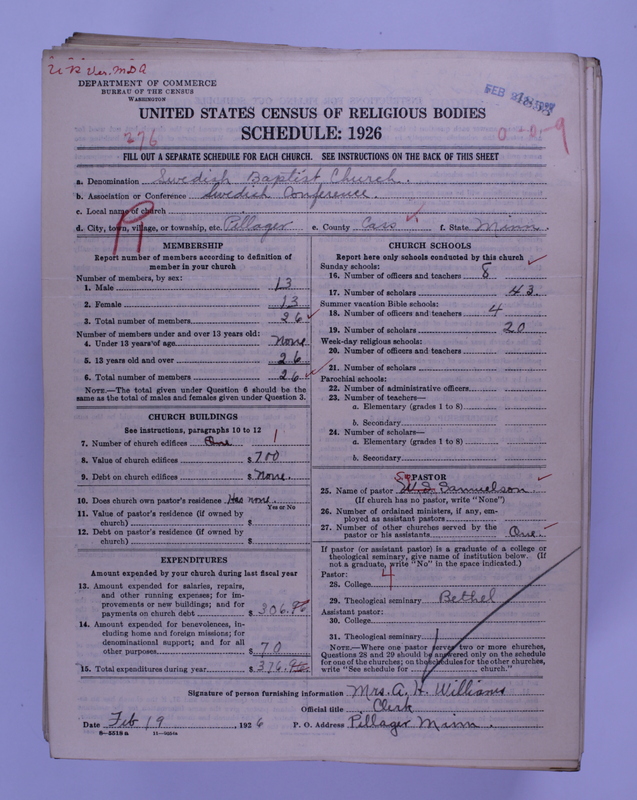 DEPARTMENT OF COMMERCE
BUREAU OF THE CENSUS
WASHINGTON
UNITED STATES CENSUS OF RELIGIOUS BODIES
SCHEDULE: 1926
276
FILL OUT A SEPARATE SCHEDULE FOR EACH CHURCH. SEE INSTRUCTIONS ON THE BACK OF THIS SHEET
a. Denomination Swedish Baptist Church.
b. Association or Conference Swedish Conference.
c. Local name of church
d. City, town, village, or township, etc. Pillager e. County Cass f. State Minn.
MEMBERSHIP
Report number of members according to definition of
member in your church
Number of members, by sex:
1. Male 13
2. Female 13
3. Total number of members 26
Number of members under and over 13 years old:
4. Under 13 years of age None
5. 13 years old and over 26
6. Total number of members 26
NOTE.—The total given under Question 6 should be the
same as the total of males and females given under Question 3.
CHURCH BUILDINGS
See instructions, paragraphs 10 to 12
7. Number of church edifices One 1
8. Value of church edifices $ 700
9. Debt on church edifices $ None.
10. Does church own pastor's residence Has none.
Yes or No
11. Value of pastor's residence (if owned by
church) $
12. Debt on pastor's residence (if owned by
church) $
EXPENDITURES
Amount expended by your church during last fiscal year
13. Amount expended for salaries, repairs,
and other running expenses; for im-
provements or new buildings; and for
payments on church debt $ 306.
14. Amount expended for benevolences, in-
cluding home and foreign missions; for
denominational support; and for all
other purposes $ 70
15. Total expenditures during year $ 376.
CHURCH SCHOOLS
Report here only schools conducted by this church
Sunday schools:
16. Number of officers and teachers 8
17. Number of scholars 43.
Summer vacation Bible schools:
18. Number of officers and teachers 4
19. Number of scholars 20
Week-day religious schools:
20. Number of officers and teachers
21. Number of scholars
Parochial schools:
22. Number of administrative officers
23. Number of teachers—
a. Elementary (grades 1 to 8)
b. Secondary
24. Number of scholars—
a. Elementary (grades 1 to 8)
b. Secondary
PASTOR
25. Name of pastor Samuelson.
(If church has no pastor, write "None")
26. Number of ordained ministers, if any, em-
ployed as assistant pastors
27. Number of other churches served by the
pastor or his assistants One.
If pastor (or assistant pastor) is a graduate of a college or
theological seminary, give name of institution below. (If
not a graduate, write "No" in the space indicated.)
Pastor:
28. College
29. Theological seminary Bethel
Assistant pastor:
30. College
31. Theological seminary
NOTE.—Where one pastor serves two or more churches,
Questions 28 and 29 should be answered only on the schedule
for one of the churches; on the schedules for the other churches,
write "See schedule for church."
Signature of person furnishing information Mrs. A. H. Williams
Official title Clerk
Date Feb 19 1926 P. O. Address Pillager Minn.
8-5518a